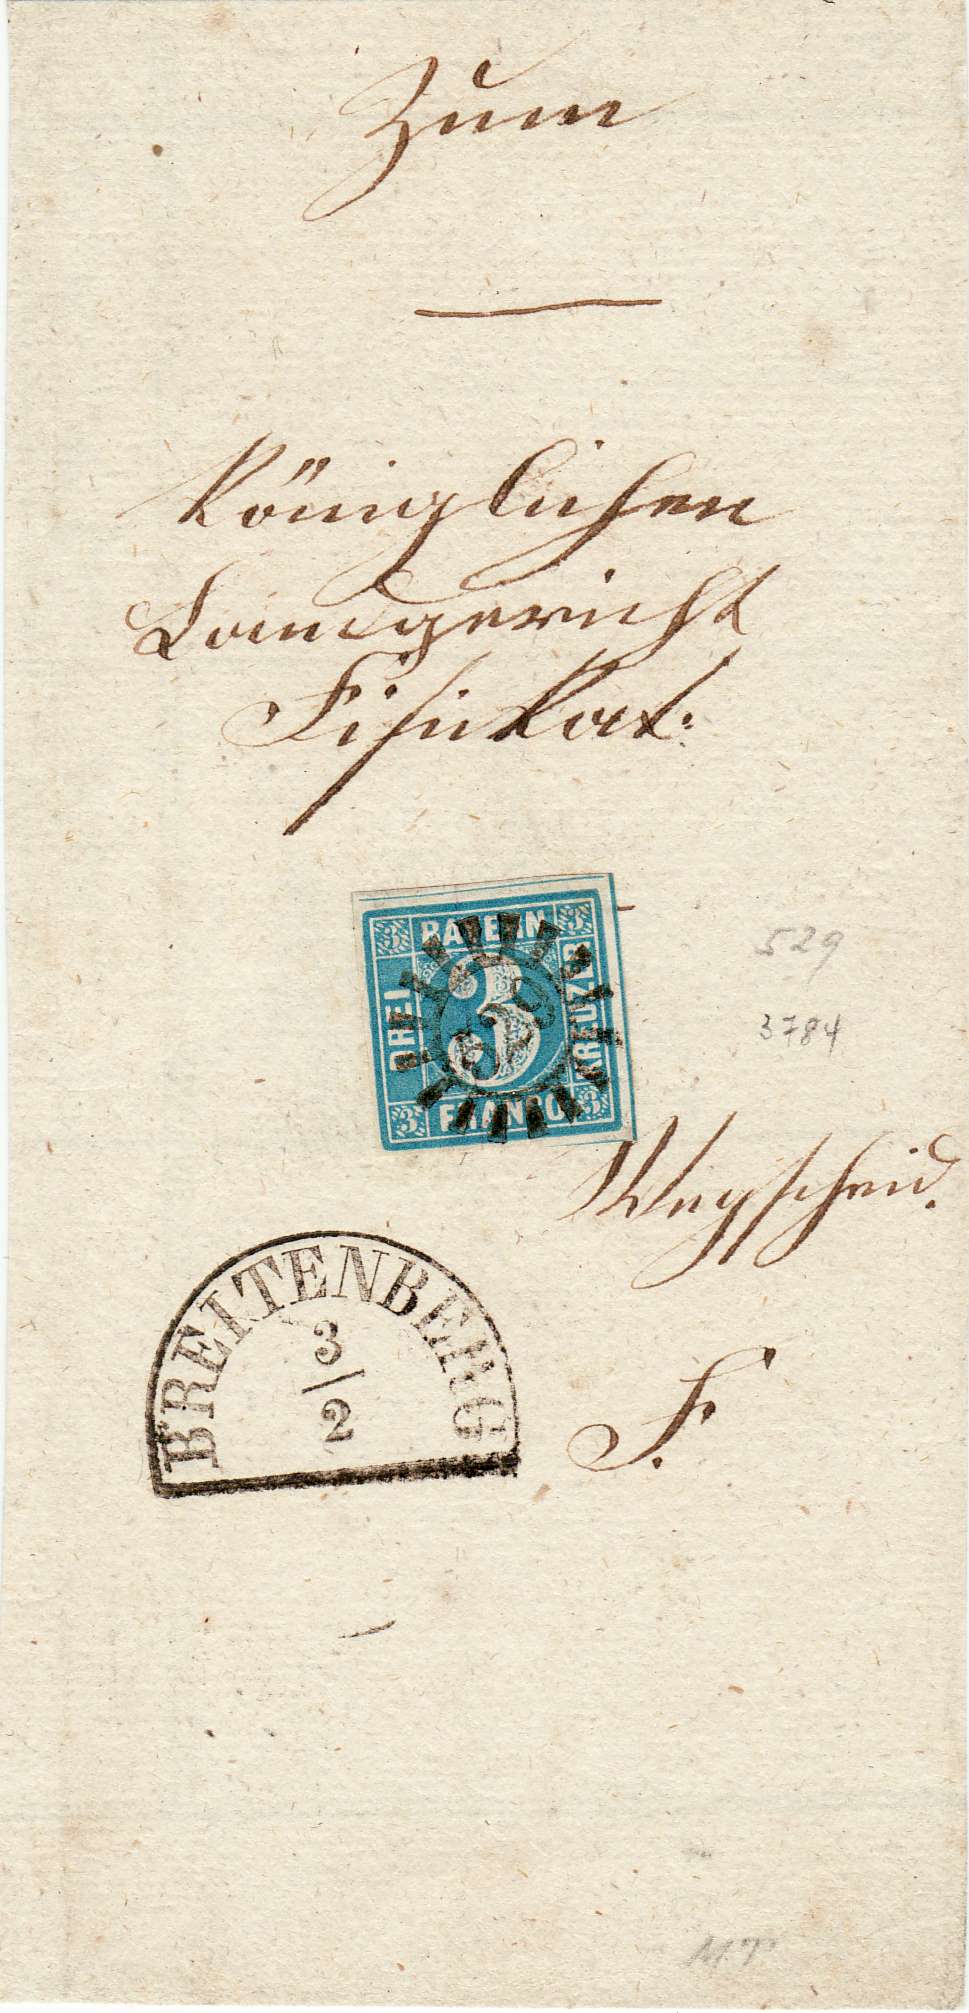 Zum
Königlichen
Landgericht
Fisikat:
BAYERN
DREI
3
KREUZER
FRANCO
3
3
3
3
529
529
3784
Wegscheid.
BREITENBERG
3/2
F.